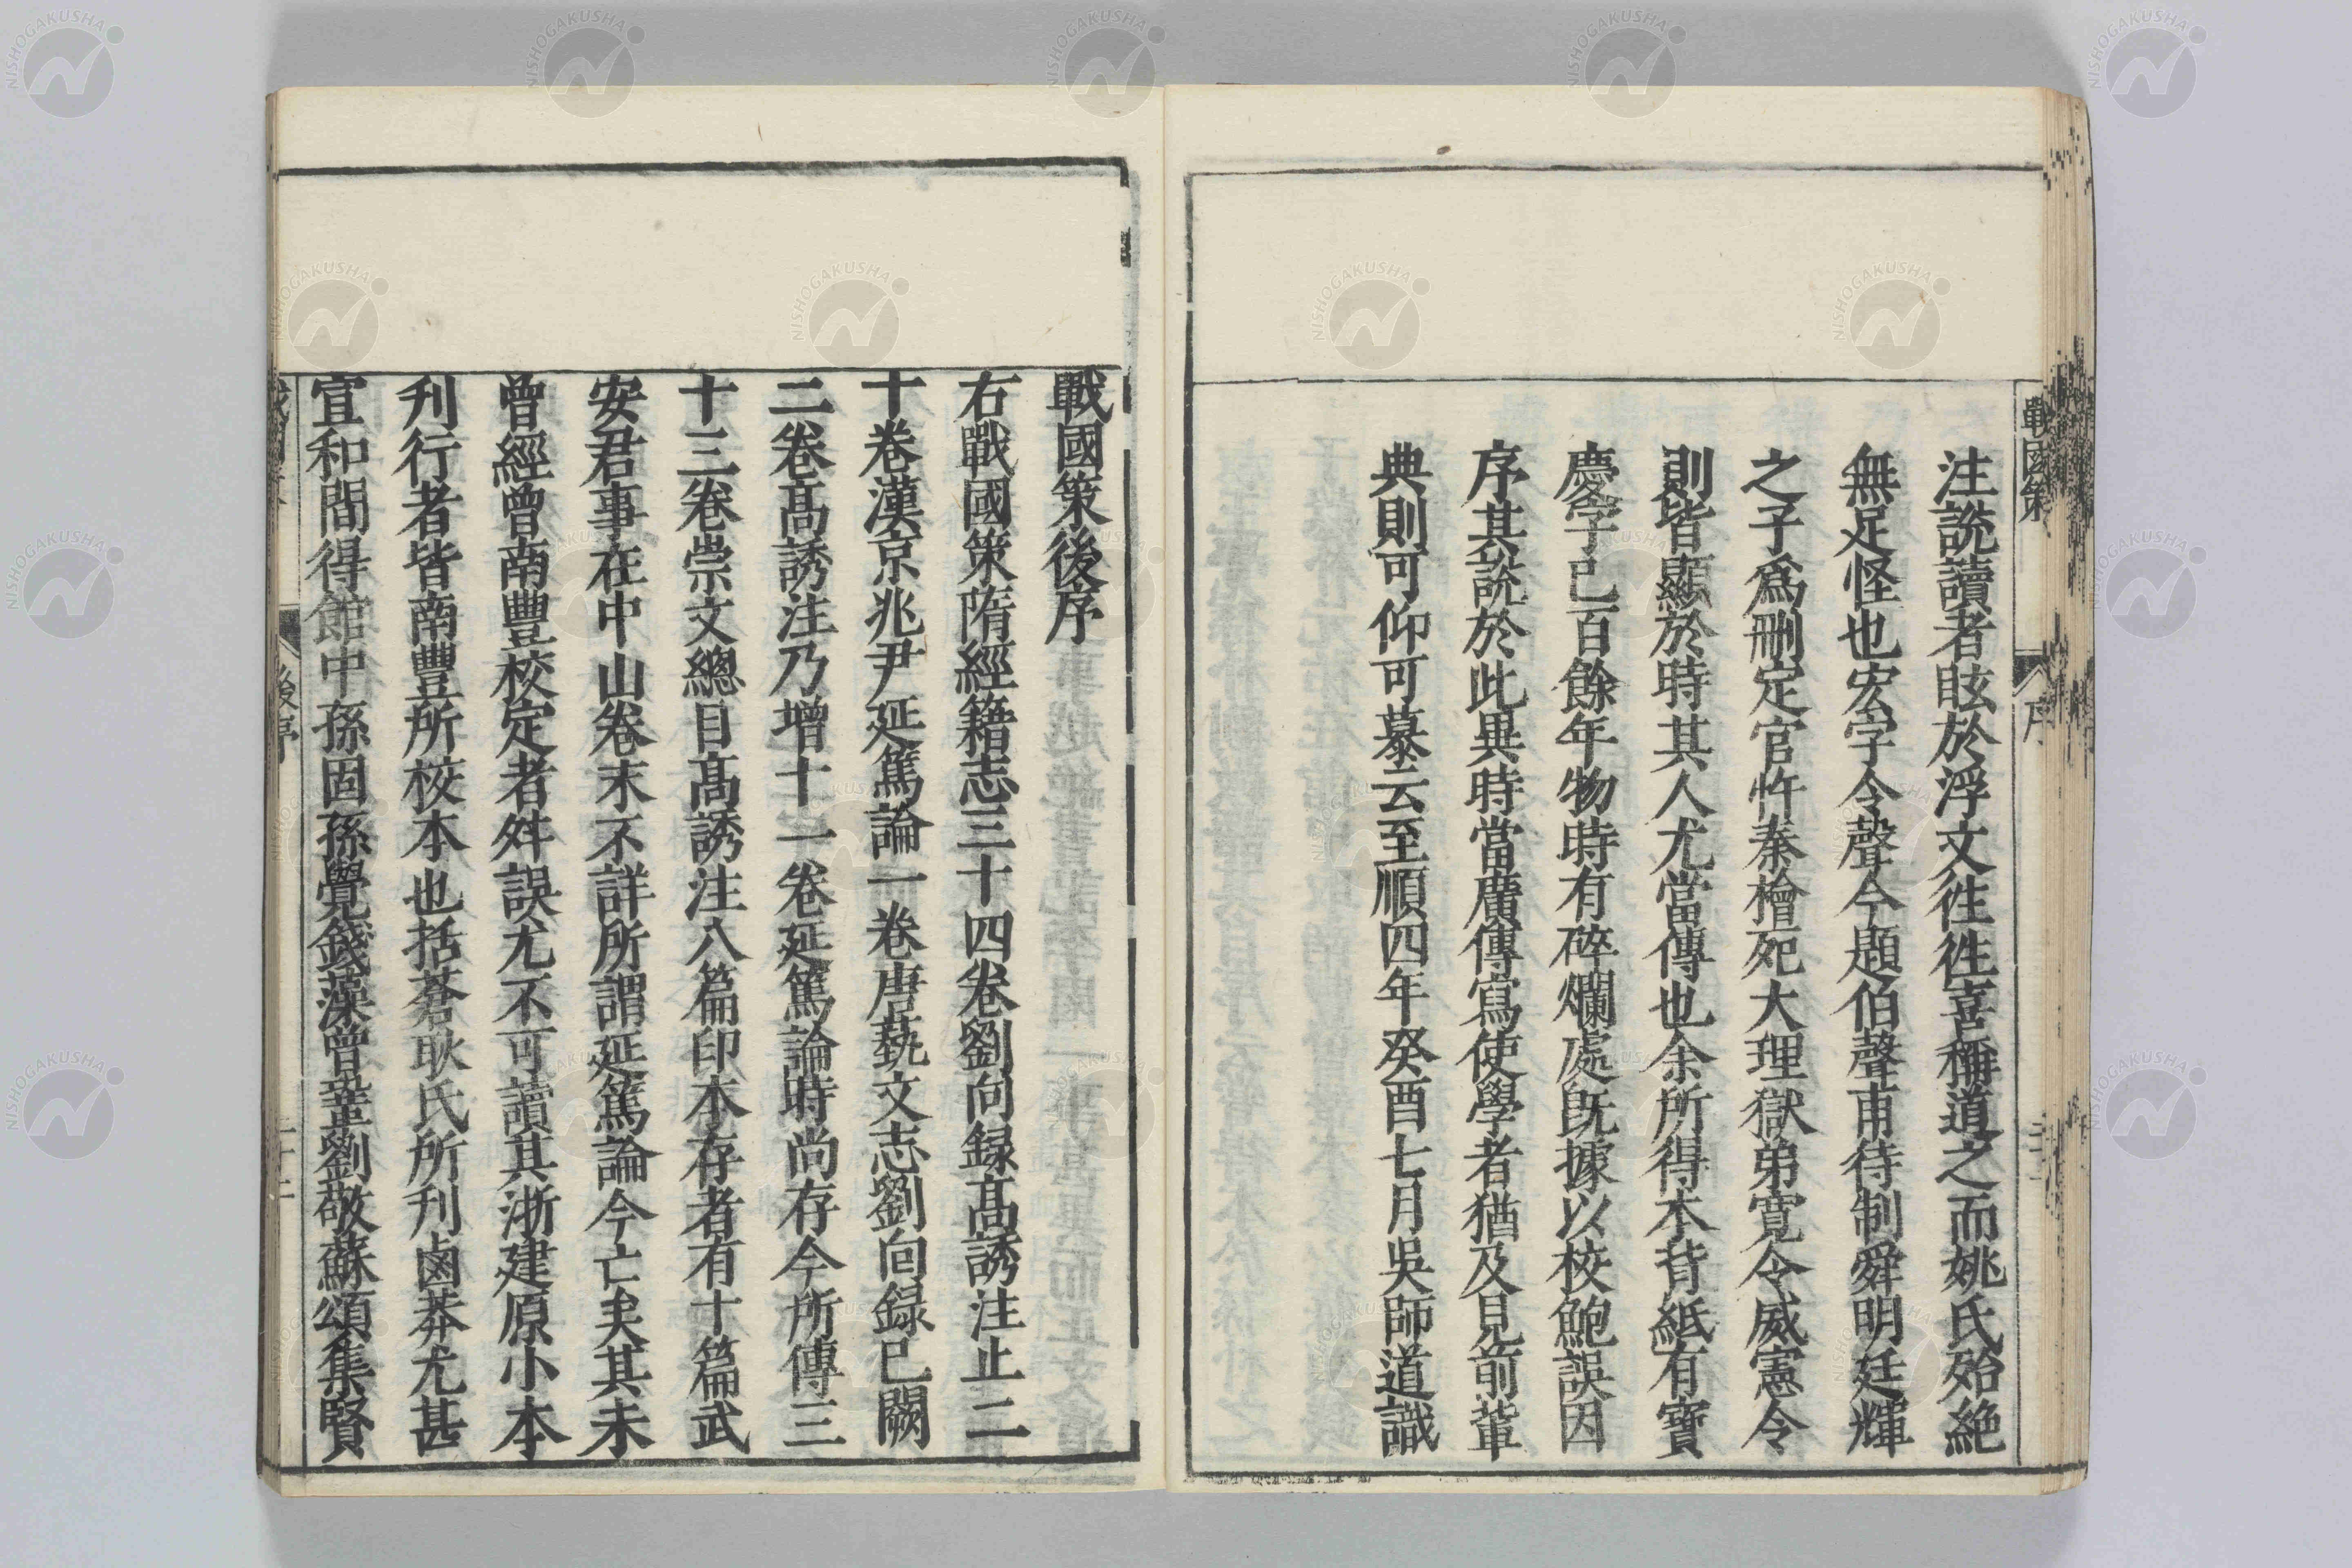 戰國策
序
注說讀者眩於浮文往往喜稱道之而姚氏殆絶
無足怪也宏字令聲今題伯聲甫待制舜明廷輝
之子爲刪定官忤秦檜死大理獄弟寬令威憲令
則皆顯於時其人尤當傳也余所得本背紙有寶
慶字已百餘年物時有碎爛處旣據以校鮑誤因
序其說於此異時當廣傳寫使學者猶及見前輩
典則可仰可慕云至順四年癸酉七月吳師道識
戰國策後序
右戰國策隋經籍志三十四卷劉向録高誘注止二
十卷漢京兆尹延篤論一卷唐藝文志劉向録已闕
二卷高誘注乃增十一卷延篤論時尚存今所傳三
十三卷崇文總目高誘注八篇印本存者有十篇武
安君事在中山卷末不詳所謂延篤論今亡矣其未
曾經曾南豐校定者舛誤尤不可讀其浙建原小本
刋行者皆南豐所校本也括蒼耿氏所刋鹵莽尤甚
宣和間得館中孫固孫覺錢藻曾鞏劉敞蘇頌集賢
後序
NISHOGAKUSHA